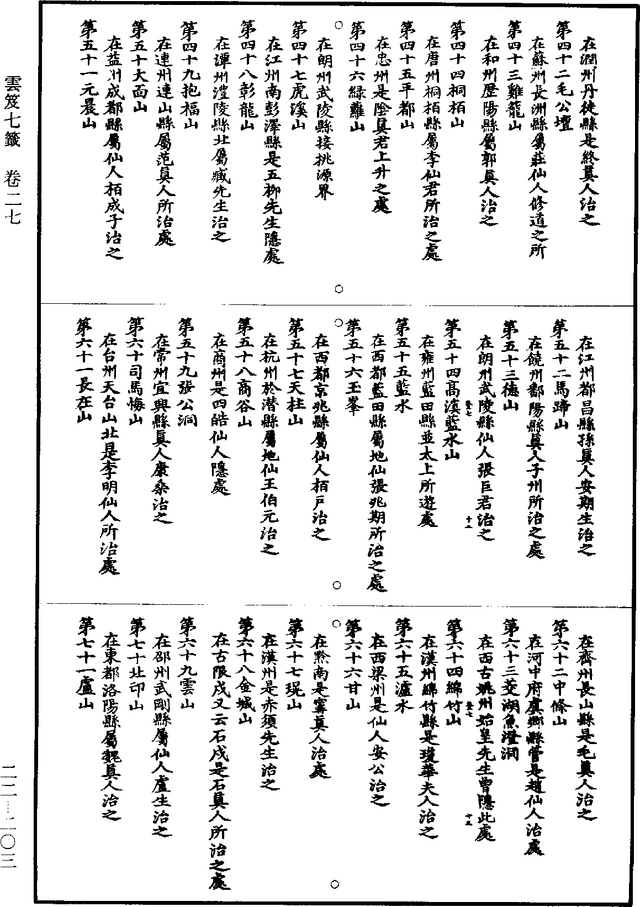 在潤州丹徒縣是終真人治之
第四十二毛公壇
在蘇州長洲縣屬莊仙人修道之所
第四十三雞籠山
在和州歷陽縣屬郭真人治之
第四十四桐栢山
在唐州桐栢縣屬李仙君所治之處
第四十五平都山
在忠州是陰真君上升之處
第四十六綠蘿山
在朗州武陵縣接桃源界
第四十七虎溪山
在江州南彭澤縣是五柳先生隱處
第四十八彰龍山
在潭州澧陵縣北屬臧先生治之
第四十九抱福山
在連州連山縣屬范真人所治處
第五十大面山
在益州成都縣屬仙人栢成子治之
第五十一元晨山
在江州都昌縣孫真人安期生治之
第五十二馬蹄山
在饒州鄱陽縣真人子州所治之處
第五十三德山
在朗州武陵縣仙人張巨君治之
第五十四高溪藍水山
在雍州藍田縣並太上所遊處
第五十五藍水
在西都藍田縣屬地仙張兆期所治之處
第五十六玉峯
在西都京兆縣屬仙人栢戶治之
第五十七天柱山
在杭州於潛縣屬地仙王伯元治之
第五十八商谷山
在商州是四皓仙人隱處
第五十九張公洞
在常州宜興縣真人康桑治之
第六十司馬悔山
在台州天台山北是李明仙人所治處
第六十一長在山
在齊州長山縣是毛真人治之
第六十二中條山
在河中府虞鄉縣管是趙仙人治處
第六十三茭湖魚澄洞
在西古姚州始皇先生曾隱此處
第六十四綿竹山
在漢州綿竹縣是瓊華夫人治之
第六十五瀘水
在西梁州是仙人安公治之
第六十六甘山
在黔南是甯真人治處
第六十七㻛山
在漢州是赤須先生治之
第六十八金城山
在古限戍又云石戍是石真人所治之處
第六十九雲山
在邵州武剛縣屬仙人盧生治之
第七十北邙山
在東都洛陽縣屬魏真人治之
第七十一盧山
雲笈七籤 卷二七
二二—二〇三